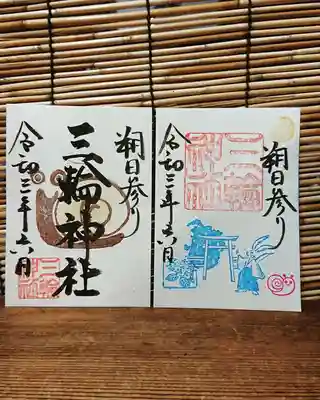 朔日参り
三輪神社
令和三年六月
三輪神社
朔日参り
三輪神社
令和三年六月